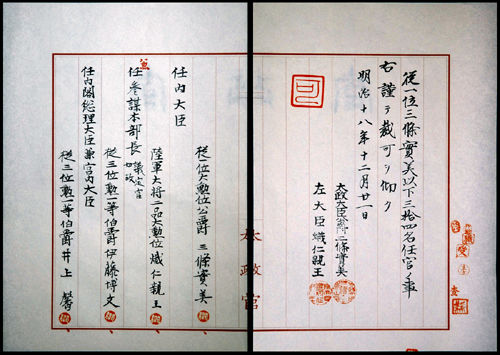 従一位三條實美以下三拾四名任官ノ事
右謹テ裁可ヲ仰ク
明治十八年十二月廿一日
太政大臣公爵三條實美
左大臣熾仁親王
可
太政官
従一位大勲位公爵三條實美
任内大臣
陸軍大将二品大勲位熾仁親王
任参謀本部長
議定官如故
従三位勲一等伯爵伊藤博文
任内閣総理大臣兼宮内大臣
従三位勲一等伯爵井上馨